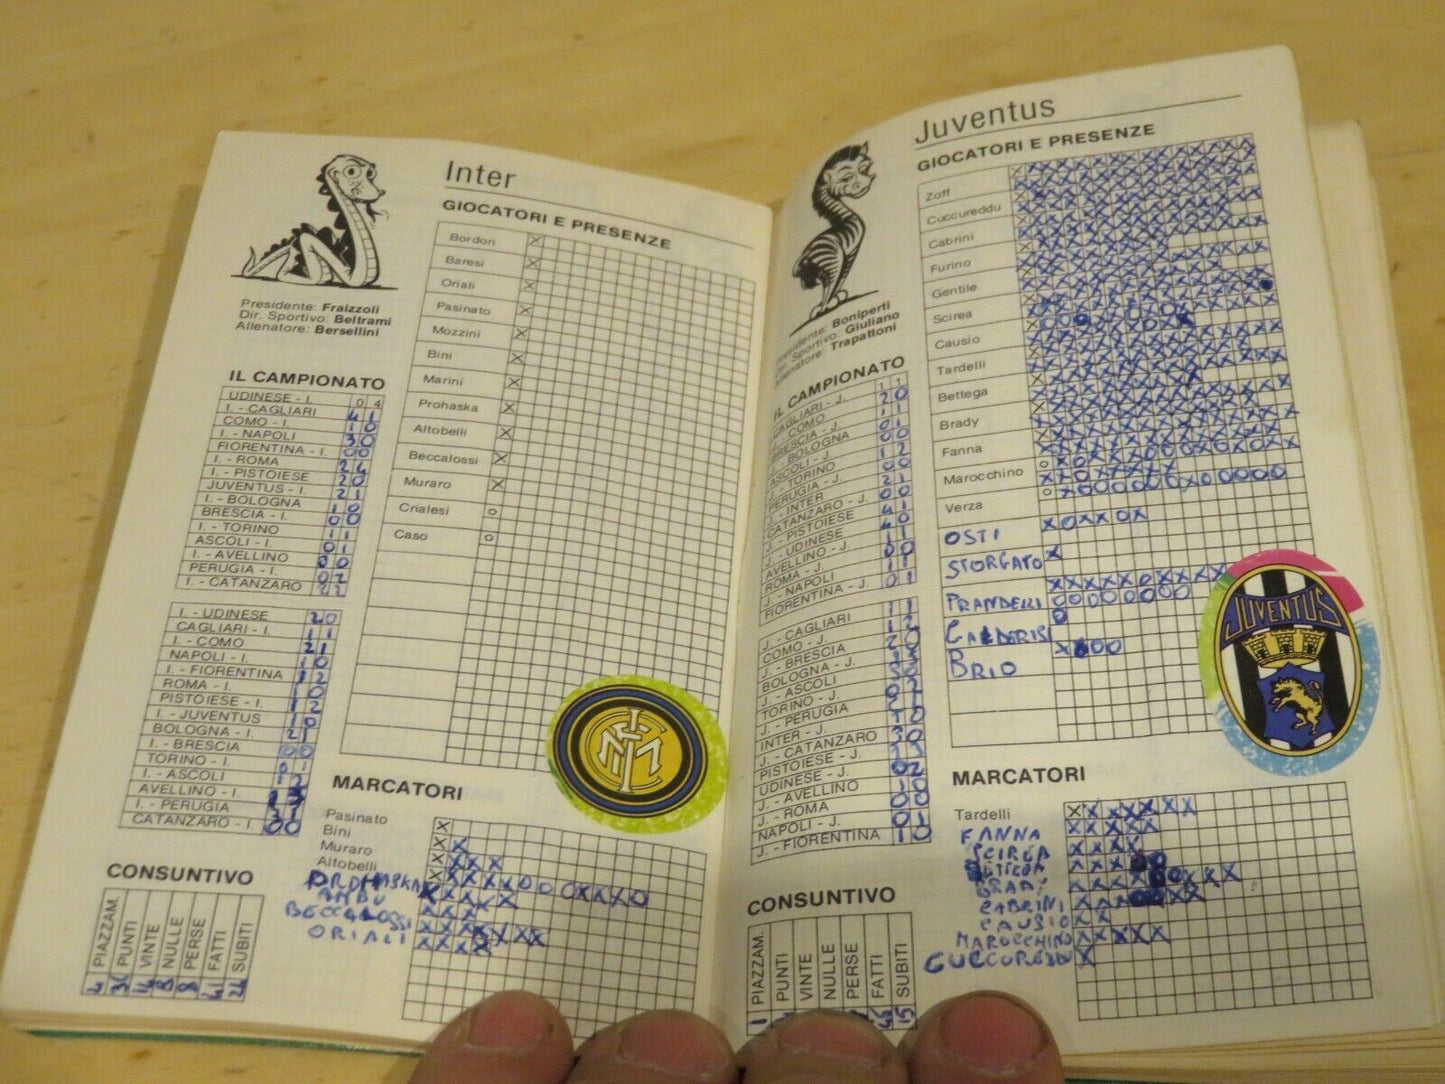 Inter
GIOCATORI E PRESENZE
Bordon
Baresi
Oriali
Pasinato
Mozzini
Bini
Marini
Prohaska
Altobelli
Beccalossi
Muraro
Crialesi
Caso
Presidente: Fraizzoli
Dir. Sportivo: Beltrami
Allenatore: Bersellini
IL CAMPIONATO
UDINESE - I. 0 4
I. - CAGLIARI 4 1
COMO - I. 1 0
I. - NAPOLI 3 0
FIORENTINA - I. 0 0
I. - ROMA 2 4
I. - PISTOIESE 2 0
JUVENTUS - I. 2 1
I. - BOLOGNA 1 0
BRESCIA - I. 0 0
I. - TORINO 1 1
ASCOLI - I. 0 1
I. - AVELLINO 0 0
PERUGIA - I.
I. - CATANZARO 2 2
I. - UDINESE 2 0
CAGLIARI - I. 1 1
I. - COMO 2 1
NAPOLI - I. 1 0
I. - FIORENTINA 1 2
ROMA - I. 1 0
PISTOIESE - I. 1 2
I. - JUVENTUS 1 0
BOLOGNA - I. 2 1
I. - BRESCIA 0 0
TORINO - I. 0 1
I. - ASCOLI 1 2
AVELLINO - I.
I. - PERUGIA 3 1
CATANZARO - I. 0 0
MARCATORI
Pasinato
Bini
Muraro
Altobelli
PROHASKA
AMBU
BECCALOSSI
ORIALI
CONSUNTIVO
PIAZZAM. 4
PUNTI 36
VINTE 14
NULLE 8
PERSE 8
FATTI 41
SUBITI 24
Juventus
GIOCATORI E PRESENZE
Zoff
Cuccureddu
Cabrini
Furino
Gentile
Scirea
Causio
Tardelli
Bettega
Brady
Fanna
Marocchino
Verza
OSTI
STORGATO
PRANDELLI
CALDERISI
BRIO
JUVENTUS
Presidente: Boniperti
Dir. Sportivo: Giuliano
Allenatore: Trapattoni
IL CAMPIONATO
CAGLIARI - J. 1 1
J. - COMO 2 0
BRESCIA - J. 1 1
J. - BOLOGNA 0 1
ASCOLI - J. 0 0
J. - TORINO 1 2
PERUGIA - J. 0 0
J. - INTER 2 1
CATANZARO - J. 0 0
J. - PISTOIESE 4 1
J. - UDINESE 4 0
AVELLINO - J. 1 1
ROMA - J. 0 0
J. - NAPOLI 1 1
FIORENTINA - J. 0 1
J. - CAGLIARI 1 1
COMO - J. 1 2
J. - BRESCIA 2 0
BOLOGNA - J.
J. - ASCOLI
TORINO - J.
J. - PERUGIA
INTER - J. 1 0
J. - CATANZARO 3 0
PISTOIESE - J. 1 3
UDINESE - J. 0 2
J. - AVELLINO 1 0
J. - ROMA 0 0
NAPOLI - J. 0 1
J. - FIORENTINA 1 0
MARCATORI
Tardelli
FANNA
SCIREA
BETTEGA
BRADY
CABRINI
CAUSIO
MAROCCHINO
CUCCUREDDU
CONSUNTIVO
PIAZZAM. 1
PUNTI
VINTE
NULLE
PERSE
FATTI 46
SUBITI 15